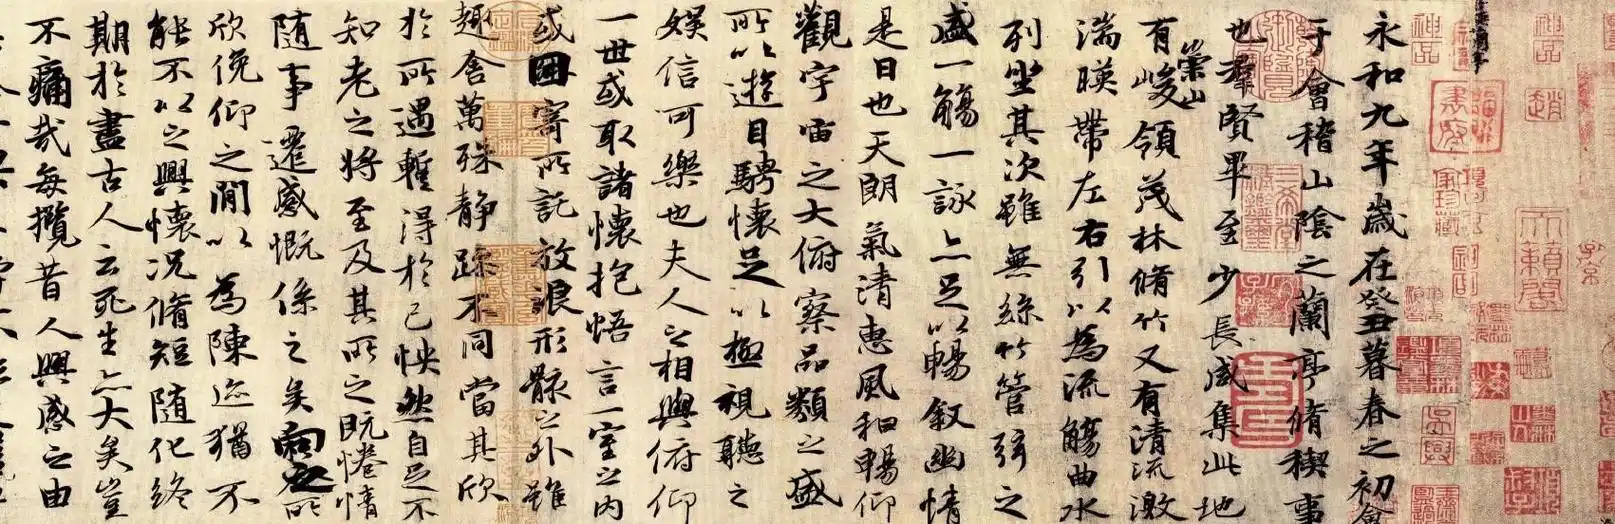 永和九年歲在癸丑暮春之初會
于會稽山陰之蘭亭脩稧事
也羣賢畢至少長咸集此地
有崇山峻領茂林脩竹又有清流激
湍暎帶左右引以為流觴曲水
列坐其次雖無絲竹管弦之
盛一觴一詠亦足以暢敘幽情
是日也天朗氣清惠風和暢仰
觀宇宙之大俯察品類之盛
所以遊目騁懷足以極視聽之
娛信可樂也夫人之相與俯仰
一世或取諸懷抱悟言一室之內
或因寄所託放浪形骸之外雖
趣舍萬殊靜躁不同當其欣
於所遇蹔得於己怏然自足不
知老之將至及其所之既惓情
隨事遷感慨係之矣向之所
欣俛仰之閒以為陳迹猶不
能不以之興懷況脩短隨化終
期於盡古人云死生亦大矣豈
不痛哉每攬昔人興感之由
神品
神品